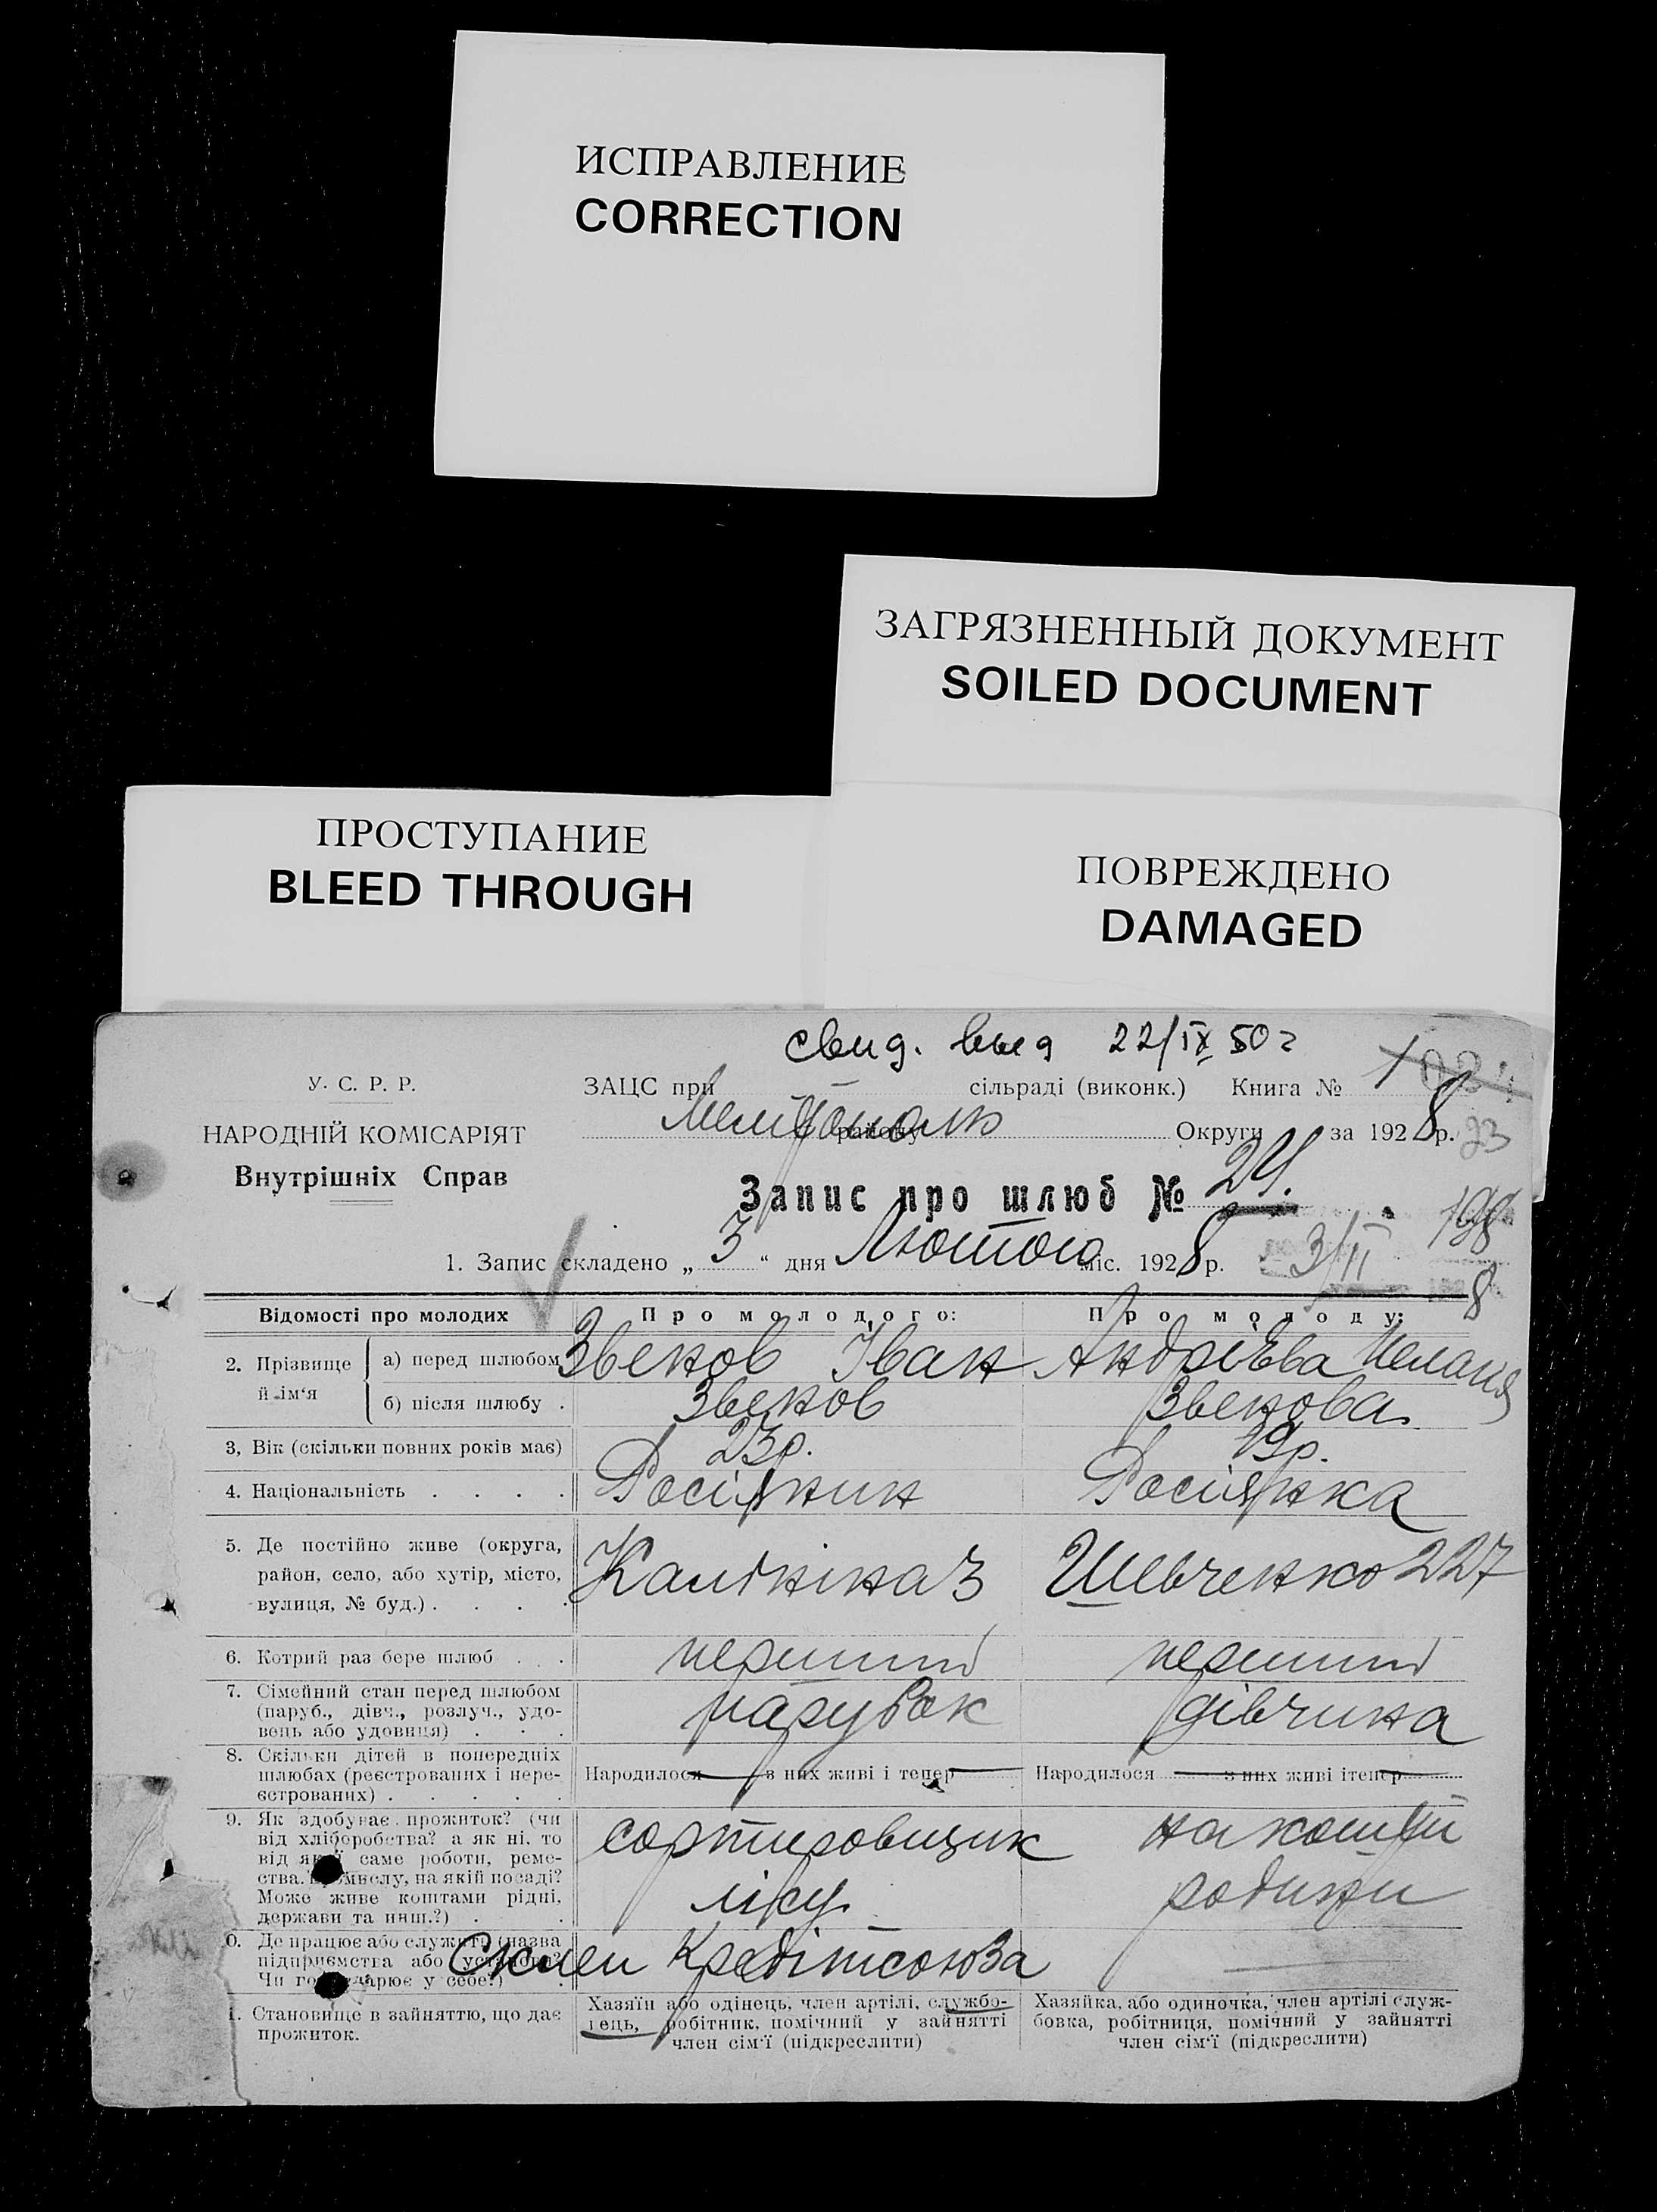 ИСПРАВЛЕНИЕ
CORRECTION
ЗАГРЯЗНЕННЫЙ ДОКУМЕНТ
SOILED DOCUMENT
ПРОСТУПАНИЕ
BLEED THROUGH
ПОВРЕЖДЕНО
DAMAGED
свид. выд 22/IX 50 г
У. С. Р. Р.
НАРОДНІЙ КОМІСАРІЯТ
Внутрішніх Справ
ЗАЦС при сільраді (виконк.) Книга №
Мелітополь району Округи за 1928 р. 23
Запис про шлюб № 24.
198
1. Запис складено „ 3 “ дня Лютого міс. 1928 р. 3/II
8
Відомості про молодих
Про молодого:
Про молоду:
2. Прізвище й ім‘я
а) перед шлюбом
Звеков Іван
Андрієва Меланія
б) після шлюбу .
Звеков
Звекова
3, Вік (скільки повних років має)
23 р.
19 р.
4. Національність . . . .
Росіянин
Росіянка
5. Де постійно живе (округа,
район, село, або хутір, місто,
вулиця, № буд.) . . . .
Калініна 3
Шевченко 227
6. Котрий раз бере шлюб . . .
перший
перший
7. Сімейний стан перед шлюбом
(паруб., дівч., розлуч., удо-
вець або удовиця) . . .
парубок
дівчина
8. Скільки дітей в попередніх
шлюбах (реєстрованих і нере-
єстрованих) . . . . .
Народилося — з них живі і тепер —
Народилося — з них живі і тепер —
9. Як здобуває прожиток? (чи
від хліборобства? а як ні, то
від якої саме роботи, реме-
ства, промислу, на якій посаді?
Може живе коштами рідні,
держави та инш.?) . .
сортировщик
лісу
на кошти
родини
0. Де працює або служить (назва
підприємства або установи?
Чи господарює у себе?) .
Склеп Кредітсоюза
1. Становище в зайняттю, що дає
прожиток.
Хазяїн або одінець, член артілі, службо-
вець, робітник, помічний у зайнятті
член сім‘ї (підкреслити)
Хазяйка, або одиночка, член артілі служ-
бовка, робітниця, помічний у зайнятті
член сім‘ї (підкреслити)